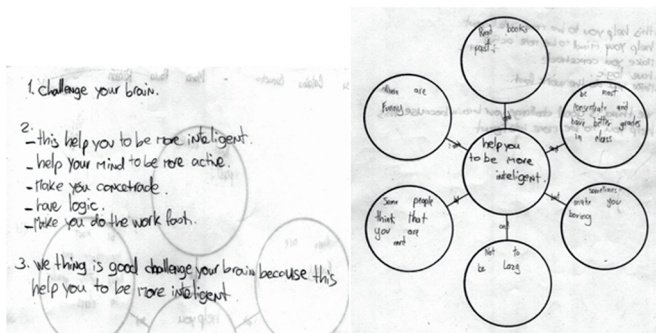 1. challenge your brain.
2.
- this help you to be more inteligent.
- help your mind to be more active.
- Make you concetrade.
- have logic.
- Make you do the work fash.
3. we thing is good challenge your brain because this
help you to be more inteligent
Read books
past.
are
funny
be most
consentrate and
have better grades
in class
help you
to be more
inteligent.
Some people
think that
you are
nerd
sometimes
make you
boring
Not to
be Lazy